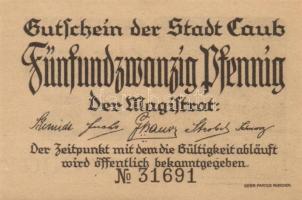 Gutschein der Stadt Caub
Fünfundzwanzig Pfennig
Der Magistrat:
Der Zeitpunkt mit dem die Gültigkeit abläuft
wird öffentlich bekanntgegeben.
№ 31691
GEBR. PARCUS MÜNCHEN.